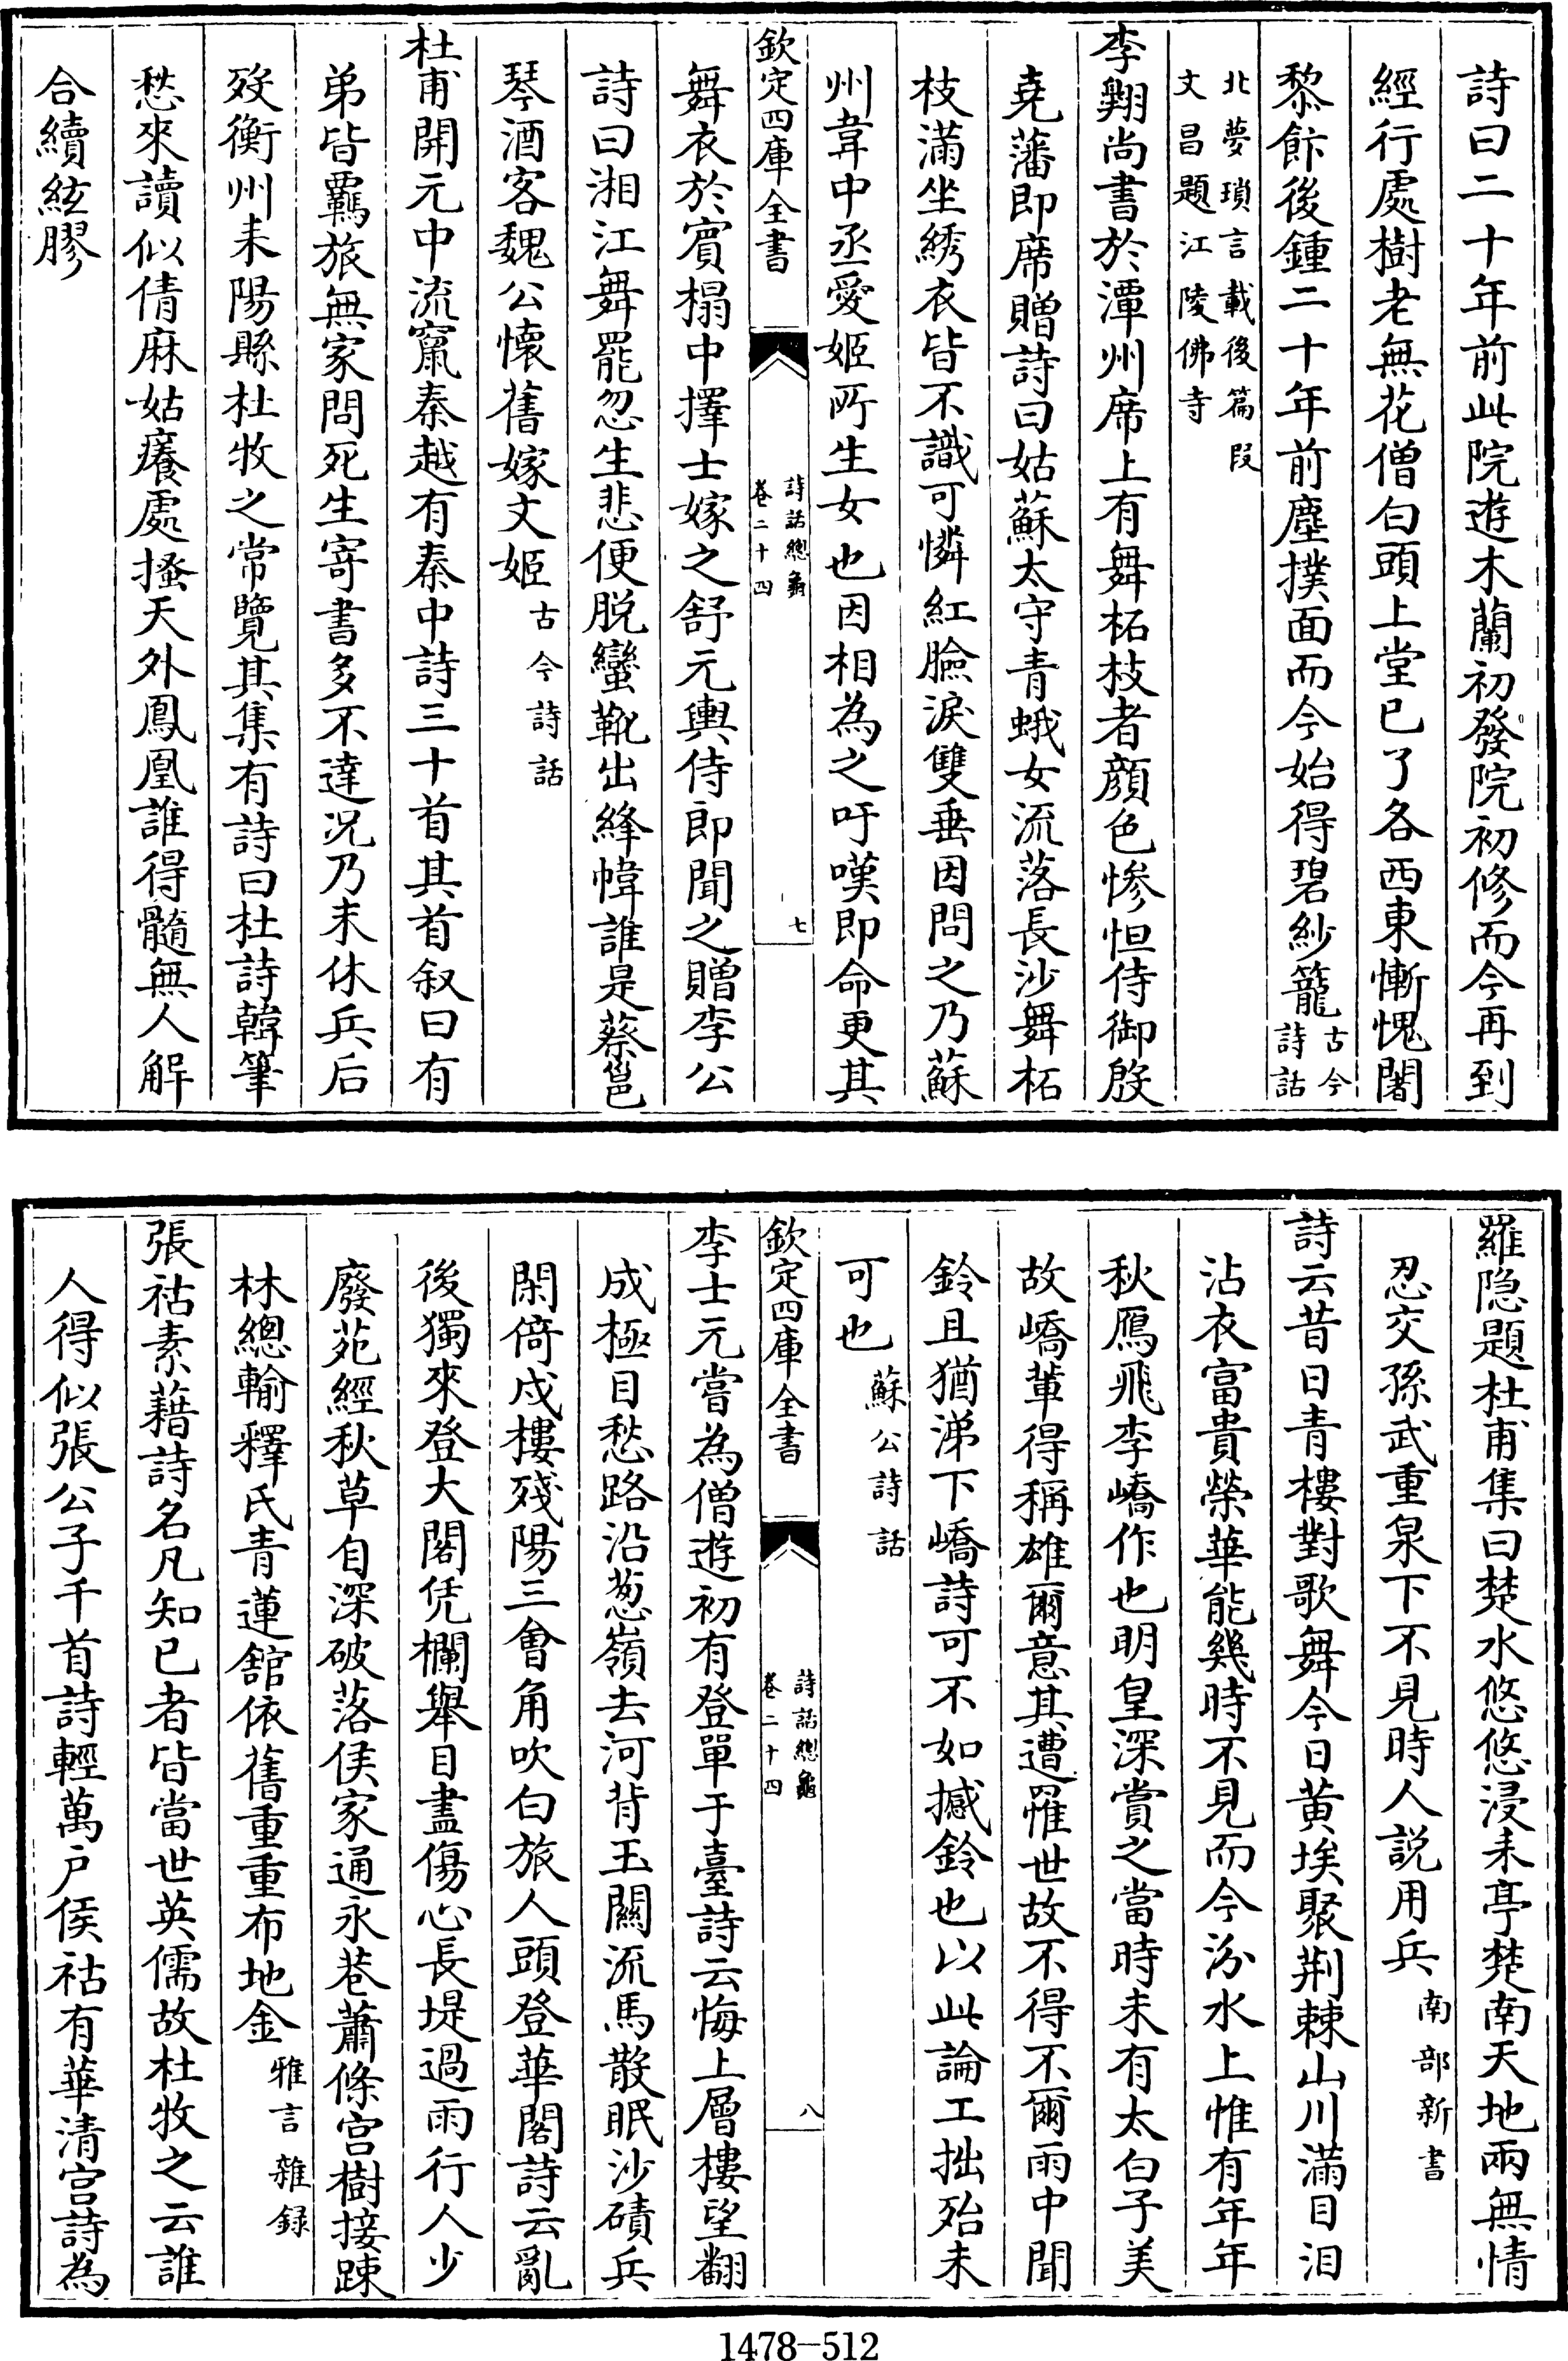 詩曰二十年前此院遊木蘭初發院初修而今再到
經行處樹老無花僧白頭上堂已了各西東慚愧闍
黎飰後鍾二十年前塵撲面而今始得碧紗籠古今詩話
北夢瑣言載後篇段文昌題江陵佛寺
李翺尚書於潭州席上有舞柘枝者顔色慘怛侍御殷
堯藩即席贈詩曰姑蘇太守青蛾女流落長沙舞柘
枝滿坐綉衣皆不識可憐紅臉淚雙垂因問之乃蘇
州韋中丞愛姬所生女也因相為之吁嘆即命更其
欽定四庫全書
詩話總龜
卷二十四
七
舞衣於賓榻中擇士嫁之舒元輿侍即聞之贈李公
詩曰湘江舞罷忽生悲便脱蠻靴出絳幃誰是蔡邕
琴酒客魏公懷舊嫁文姬古今詩話
杜甫開元中流竄秦越有秦中詩三十首其首叙曰有
弟皆羈旅無家問死生寄書多不達况乃未休兵后
歿衡州耒陽縣杜牧之常覽其集有詩曰杜詩韓筆
愁來讀似倩麻姑癢處搔天外鳳凰誰得髓無人解
合續絃膠
羅隐題杜甫集曰楚水悠悠浸耒亭楚南天地兩無情
忍交孫武重泉下不見時人説用兵南部新書
詩云昔日青樓對歌舞今日黄埃聚荆棘山川滿目泪
沾衣富貴榮華能幾時不見而今汾水上惟有年年
秋鴈飛李嶠作也明皇深賞之當時未有太白子美
故嶠軰得稱雄爾意其遭罹世故不得不爾雨中聞
鈴且猶涕下嶠詩可不如撼鈴也以此論工拙殆未
可也蘇公詩話
欽定四庫全書
詩話總龜
卷二十四
八
李士元嘗為僧遊初有登單于臺詩云悔上層樓望翻
成極目愁路沿葱嶺去河背玉關流馬散眠沙磧兵
閑倚戍樓殘陽三會角吹白旅人頭登華閣詩云亂
後獨來登大閣凭欄舉目盡傷心長堤過雨行人少
廢苑經秋草自深破落侯家通永巷蕭條宫樹接踈
林總輸釋氏青蓮舘依舊重重布地金雅言雜録
張祜素藉詩名凡知已者皆當世英儒故杜牧之云誰
人得似張公子千首詩輕萬户侯祜有華清宫詩為
1478-512